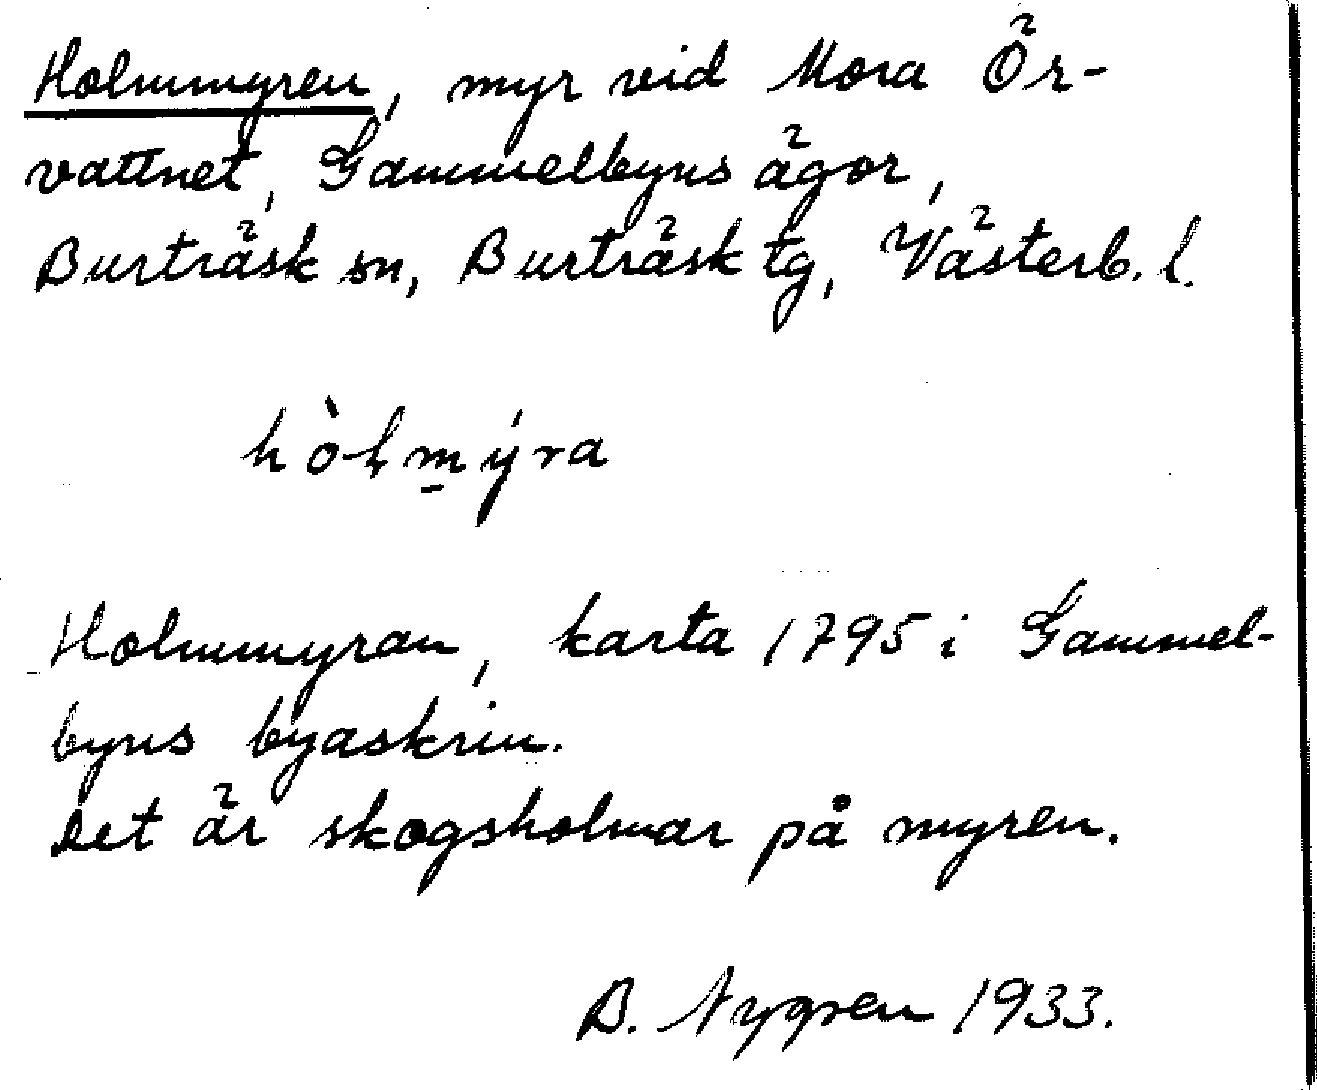 Holmmyren, myr vid Mora Ör-
vattnet, Gammelbyns ägor,
Burträsk sn, Burträsk tg, Västerb. l.
hòɫm̱ýra
Holmmyran, karta 1795 i Gammel-
byns byaskrin.
Det är skogsholmar på myren.
B. Nygren 1933.